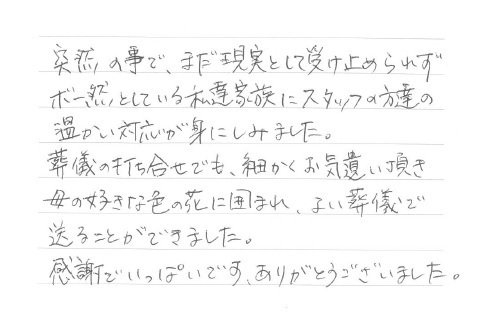 突然の事で、まだ現実として受け止められず
ボー然としている私達家族にスタッフの方達の
温かい対応が身にしみました。
葬儀の打ち合せでも、細かくお気遣い頂き
母の好きな色の花に囲まれ、よい葬儀で
送ることができました。
感謝でいっぱいです、ありがとうございました。